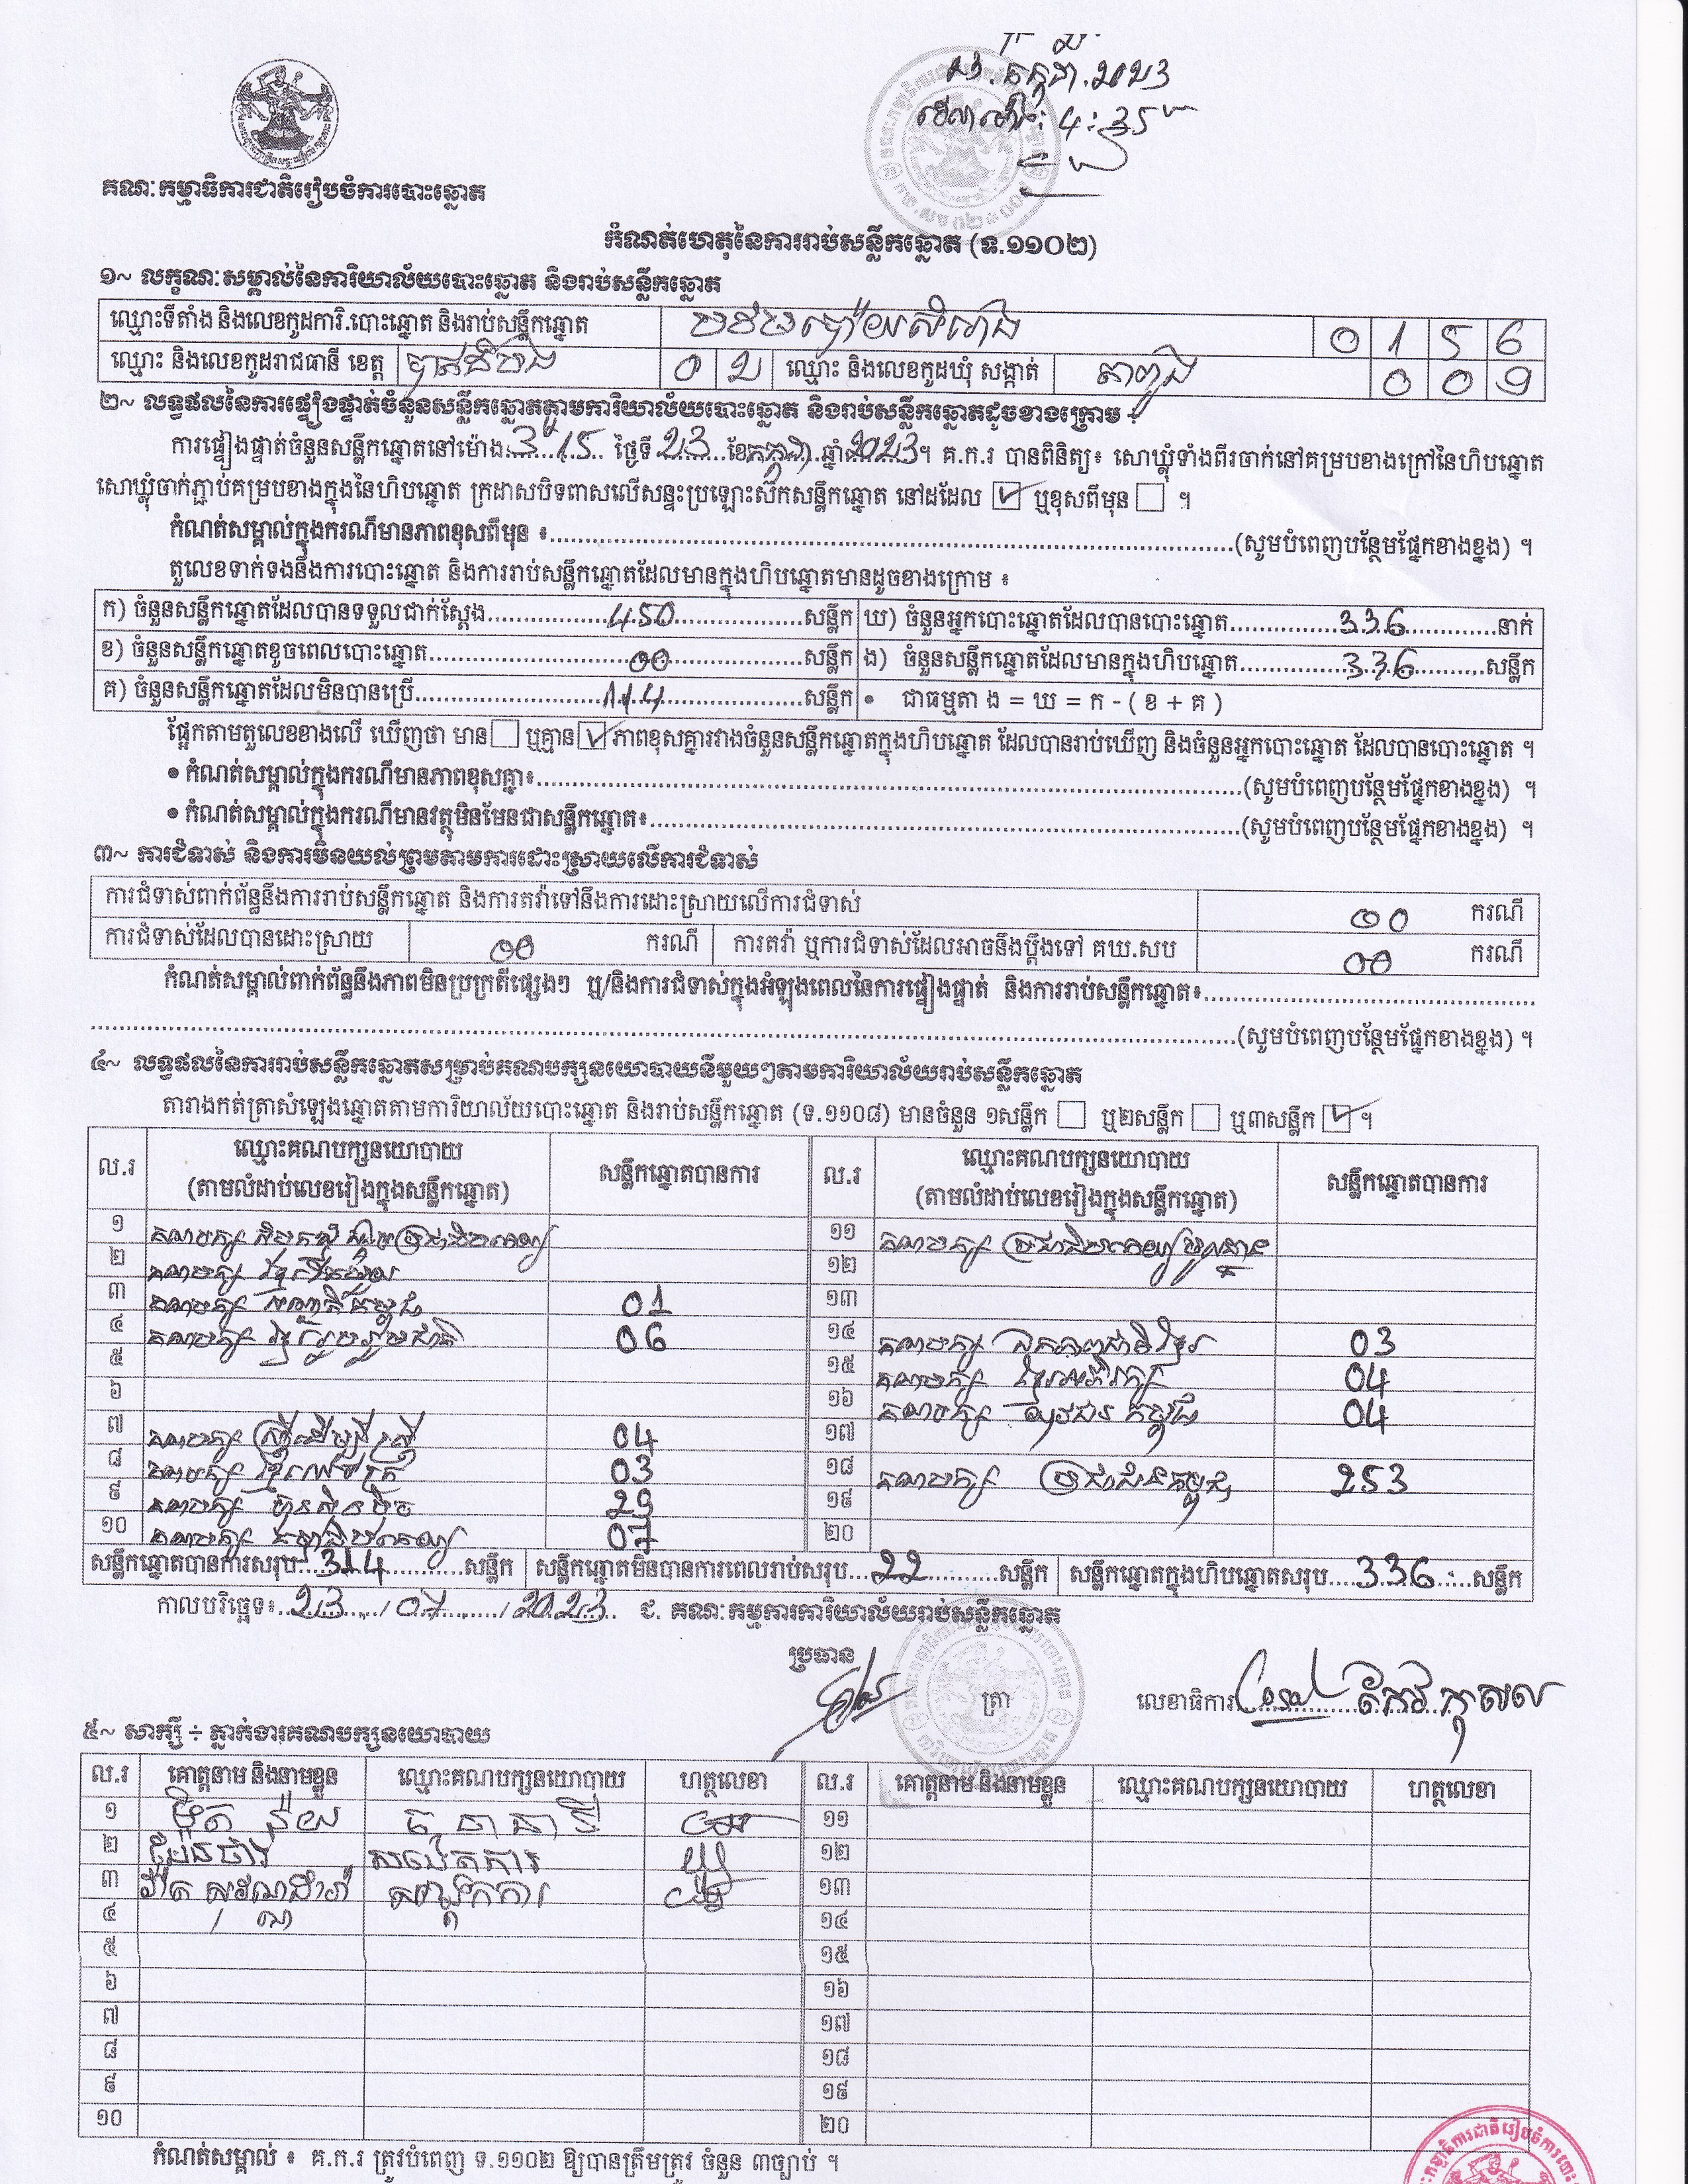 ០៣.កក្កដា.2023
4:35
គណៈកម្មាធិការជាតិរៀបចំការបោះឆ្នោត
កំណត់ហេតុនៃការរាប់សន្លឹកឆ្នោត (ទ.១១០២)
១~ លក្ខណៈសម្គាល់នៃការិយាល័យបោះឆ្នោត និងរាប់សន្លឹកឆ្នោត
ឈ្មោះទីតាំង និងលេខកូដការិ.បោះឆ្នោត និងរាប់សន្លឹកឆ្នោត 0 1 5 6
ឈ្មោះ និងលេខកូដរាជធានី ខេត្ត បាត់ដំបង 0 2 ឈ្មោះ និងលេខកូដឃុំ សង្កាត់ តាពូង 0 0 9
២~ លទ្ធផលនៃការផ្ទៀងផ្ទាត់ចំនួនសន្លឹកឆ្នោតតាមការិយាល័យបោះឆ្នោត និងរាប់សន្លឹកឆ្នោតដូចខាងក្រោម ៖
ការផ្ទៀងផ្ទាត់ចំនួនសន្លឹកឆ្នោតនៅម៉ោង 3 15 ថ្ងៃទី 23 ខែ កក្កដា ឆ្នាំ 2023 ។ គ.ក.រ បានពិនិត្យ៖ សោឃ្លុំទាំងពីរចាក់នៅគម្របខាងក្រៅនៃហិបឆ្នោត
សោឃ្លុំចាក់ភ្ជាប់គម្របខាងក្នុងនៃហិបឆ្នោត ក្រដាសបិទពាសលើសន្ទះប្រឡោះស៊កសន្លឹកឆ្នោត នៅដដែល ☑ ឬខុសពីមុន ☐ ។
កំណត់សម្គាល់ក្នុងករណីមានភាពខុសពីមុន ៖ (សូមបំពេញបន្ថែមផ្នែកខាងខ្នង) ។
តួលេខទាក់ទងនឹងការបោះឆ្នោត និងការរាប់សន្លឹកឆ្នោតដែលមានក្នុងហិបឆ្នោតមានដូចខាងក្រោម ៖
ក) ចំនួនសន្លឹកឆ្នោតដែលបានទទួលជាក់ស្តែង 450 សន្លឹក ឃ) ចំនួនអ្នកបោះឆ្នោតដែលបានបោះឆ្នោត 336 នាក់
ខ) ចំនួនសន្លឹកឆ្នោតខូចពេលបោះឆ្នោត 00 សន្លឹក ង) ចំនួនសន្លឹកឆ្នោតដែលមានក្នុងហិបឆ្នោត 336 សន្លឹក
គ) ចំនួនសន្លឹកឆ្នោតដែលមិនបានប្រើ 114 សន្លឹក • ជាធម្មតា ង = ឃ = ក - ( ខ + គ )
ផ្អែកតាមតួលេខខាងលើ ឃើញថា មាន ☐ ឬគ្មាន ☑ ភាពខុសគ្នារវាងចំនួនសន្លឹកឆ្នោតក្នុងហិបឆ្នោត ដែលបានរាប់ឃើញ និងចំនួនអ្នកបោះឆ្នោត ដែលបានបោះឆ្នោត ។
• កំណត់សម្គាល់ក្នុងករណីមានភាពខុសគ្នា៖ (សូមបំពេញបន្ថែមផ្នែកខាងខ្នង) ។
• កំណត់សម្គាល់ក្នុងករណីមានវត្ថុមិនមែនជាសន្លឹកឆ្នោត៖ (សូមបំពេញបន្ថែមផ្នែកខាងខ្នង) ។
៣~ ការជំទាស់ និងការមិនយល់ព្រមតាមការដោះស្រាយលើការជំទាស់
ការជំទាស់ពាក់ព័ន្ធនឹងការរាប់សន្លឹកឆ្នោត និងការតវ៉ាទៅនឹងការដោះស្រាយលើការជំទាស់ 00 ករណី
ការជំទាស់ដែលបានដោះស្រាយ 00 ករណី ការតវ៉ា ឬការជំទាស់ដែលអាចនឹងប្តឹងទៅ គឃ.សប 00 ករណី
កំណត់សម្គាល់ពាក់ព័ន្ធនឹងភាពមិនប្រក្រតីផ្សេងៗ ឬ/និងការជំទាស់ក្នុងអំឡុងពេលនៃការផ្ទៀងផ្ទាត់ និងការរាប់សន្លឹកឆ្នោត៖
(សូមបំពេញបន្ថែមផ្នែកខាងខ្នង) ។
៤~ លទ្ធផលនៃការរាប់សន្លឹកឆ្នោតសម្រាប់គណបក្សនយោបាយនីមួយៗតាមការិយាល័យរាប់សន្លឹកឆ្នោត
តារាងកត់ត្រាសំឡេងឆ្នោតតាមការិយាល័យបោះឆ្នោត និងរាប់សន្លឹកឆ្នោត (ទ.១១០៨) មានចំនួន ១សន្លឹក ☐ ឬ២សន្លឹក ☐ ឬ៣សន្លឹក ☑ ។
ល.រ ឈ្មោះគណបក្សនយោបាយ សន្លឹកឆ្នោតបានការ ល.រ ឈ្មោះគណបក្សនយោបាយ សន្លឹកឆ្នោតបានការ
(តាមលំដាប់លេខរៀងក្នុងសន្លឹកឆ្នោត) (តាមលំដាប់លេខរៀងក្នុងសន្លឹកឆ្នោត)
១ គណបក្ស ប្រជាធិបតេយ្យ ១១ គណបក្ស ប្រជាធិបតេយ្យមូលដ្ឋាន
២ គណបក្ស ១២
៣ គណបក្ស កម្ពុជា 01 ១៣
៤ គណបក្ស ខ្មែររួបរួមជាតិ 06 ១៤ គណបក្ស ឯកភាពជាតិខ្មែរ 03
៥ ១៥ គណបក្ស ខ្មែរអភិរក្ស 04
៦ ១៦ គណបក្ស យុវជនកម្ពុជា 04
៧ គណបក្ស ស្ត្រីដើម្បីស្ត្រី 04 ១៧
៨ គណបក្ស ខ្មែរ 03 ១៨ គណបក្ស ប្រជាជនកម្ពុជា 253
៩ គណបក្ស ហ្វ៊ុនស៊ិនប៉ិច 29 ១៩
១០ គណបក្ស 07 ២០
សន្លឹកឆ្នោតបានការសរុប 314 សន្លឹក សន្លឹកឆ្នោតមិនបានការពេលរាប់សរុប 22 សន្លឹក សន្លឹកឆ្នោតក្នុងហិបឆ្នោតសរុប 336 សន្លឹក
កាលបរិច្ឆេទ៖ 23 / 07 / 2023 ជ. គណៈកម្មការការិយាល័យរាប់សន្លឹកឆ្នោត
ប្រធាន
ត្រា
លេខាធិការ កែវ កុសល
៥~ សាក្សី ÷ ភ្នាក់ងារគណបក្សនយោបាយ
ល.រ គោត្តនាម និងនាមខ្លួន ឈ្មោះគណបក្សនយោបាយ ហត្ថលេខា ល.រ គោត្តនាម និងនាមខ្លួន ឈ្មោះគណបក្សនយោបាយ ហត្ថលេខា
១ ១១
២ សង្កេតការ ១២
៣ ១៣
៤ ១៤
៥ ១៥
៦ ១៦
៧ ១៧
៨ ១៨
៩ ១៩
១០ ២០
កំណត់សម្គាល់ ៖ គ.ក.រ ត្រូវបំពេញ ទ.១១០២ ឱ្យបានត្រឹមត្រូវ ចំនួន ៣ច្បាប់ ។